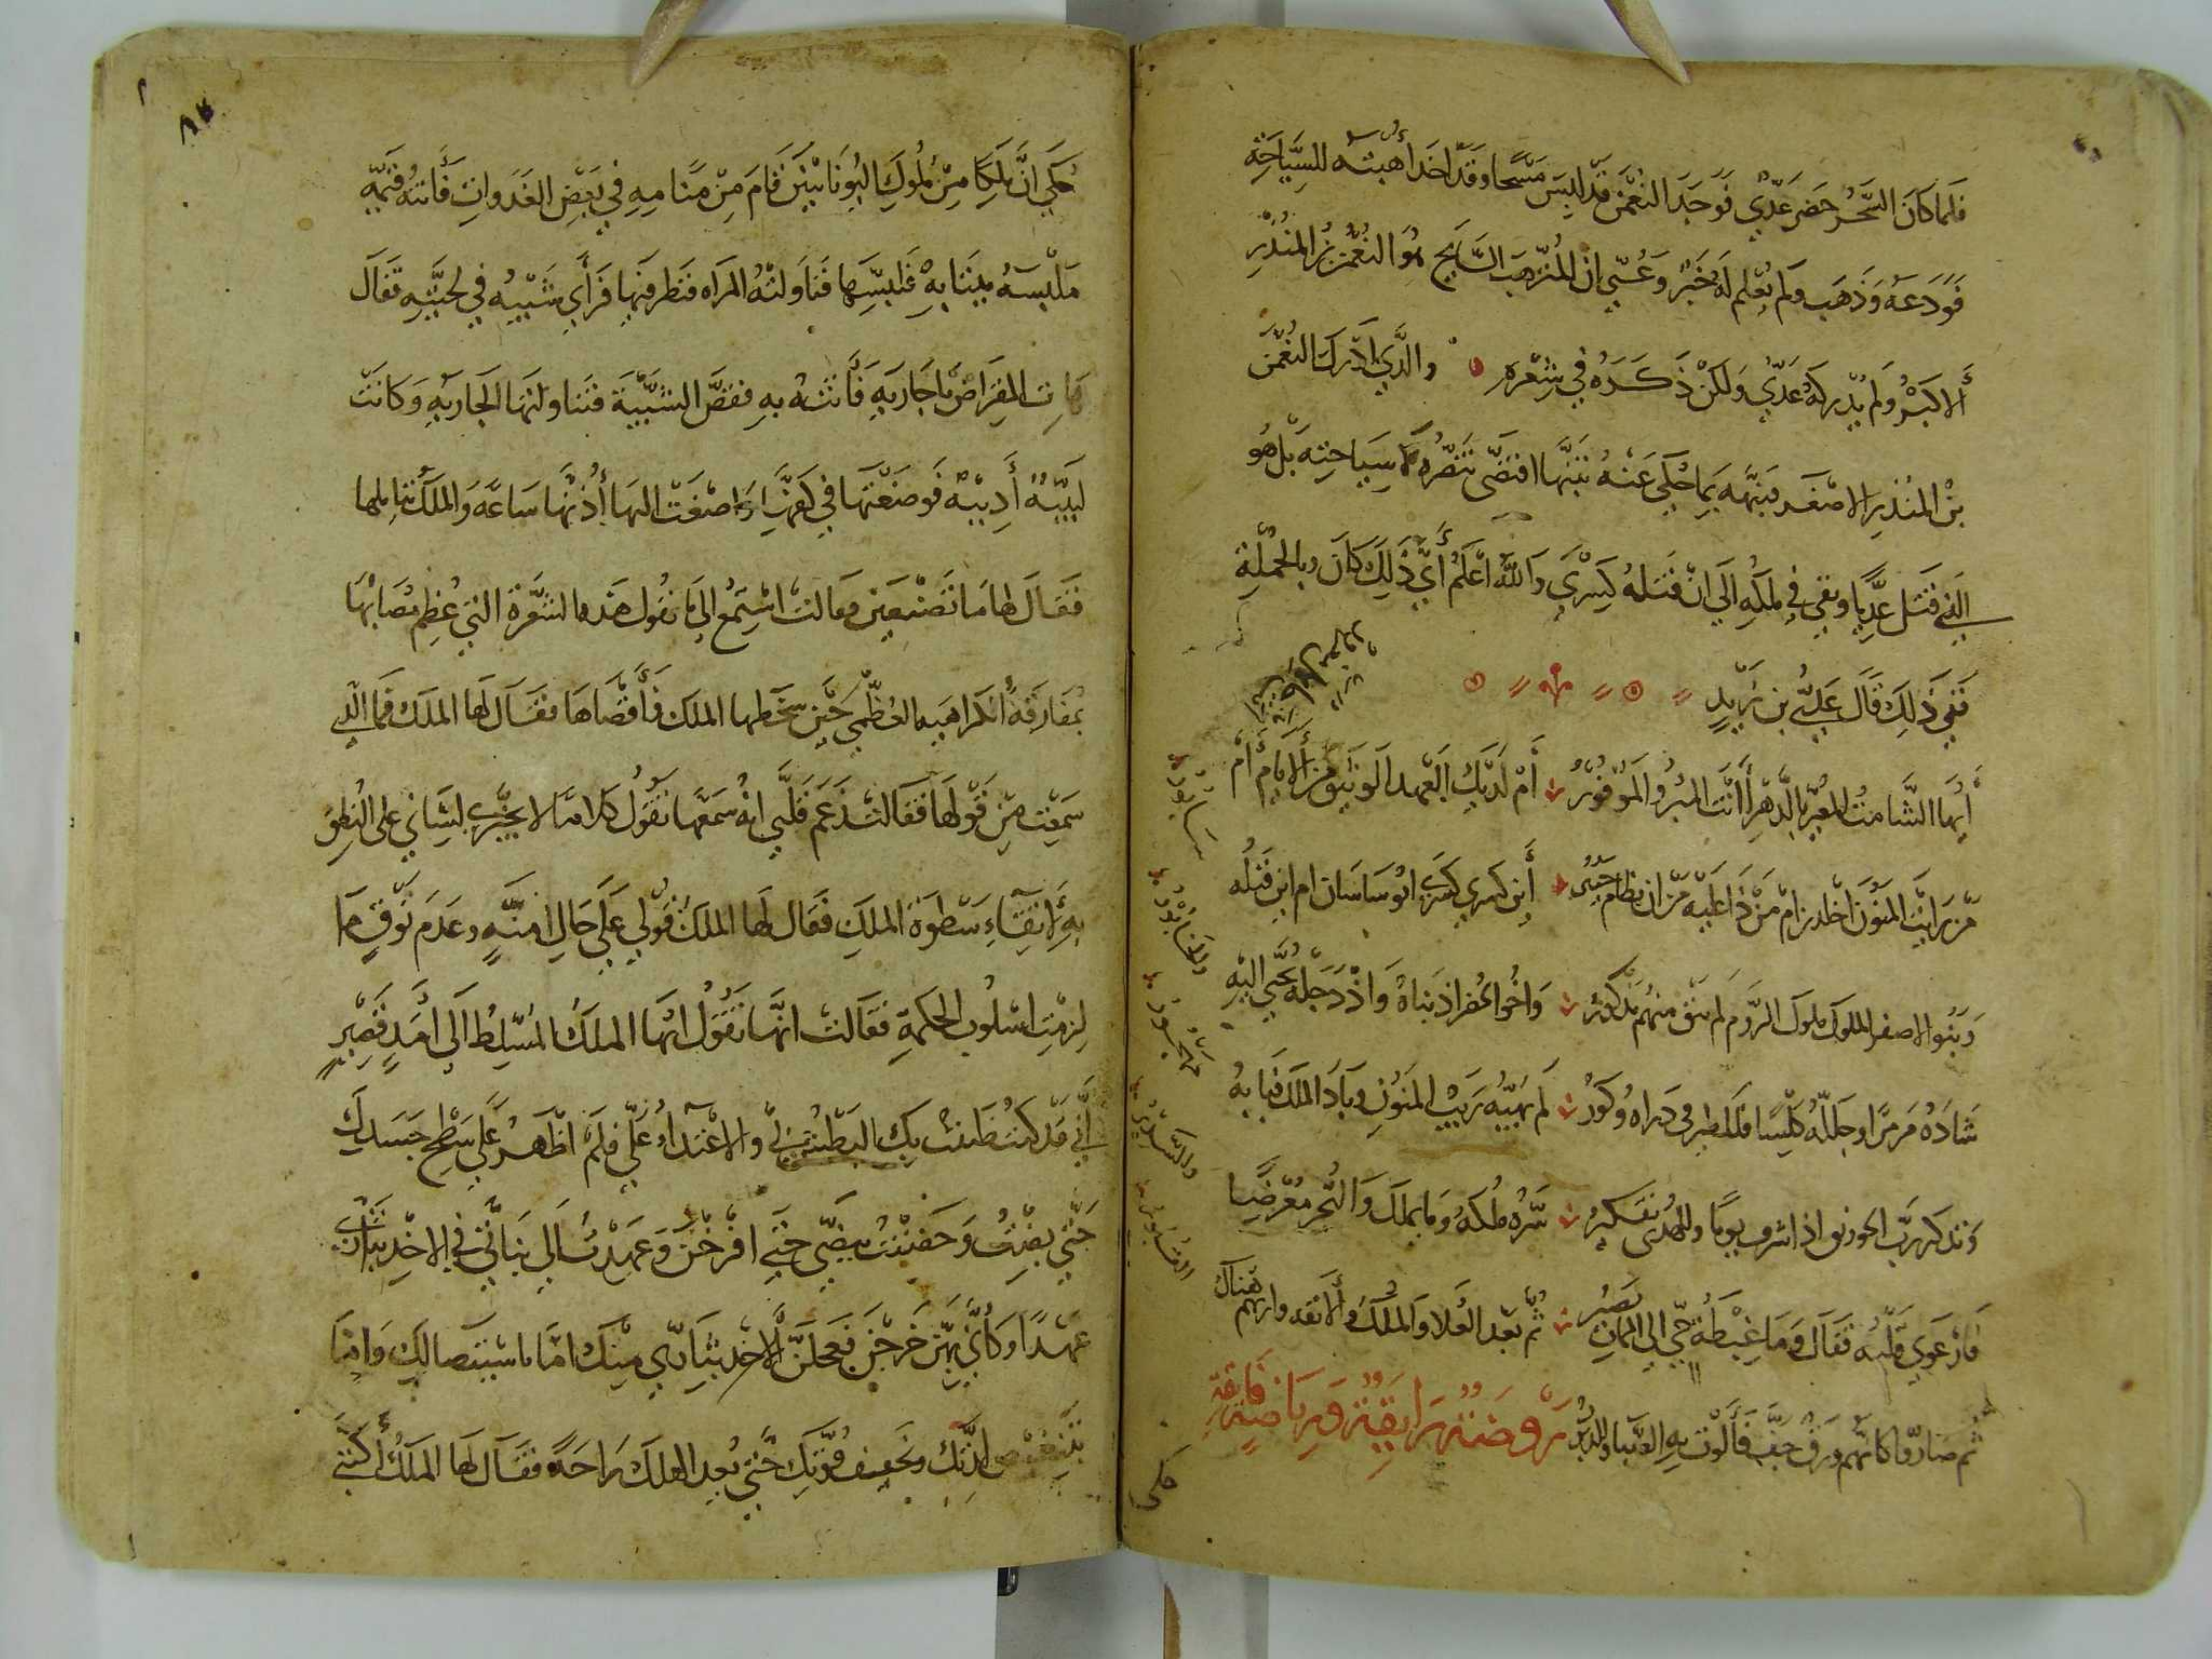 فلما كان السَّحَرُ حضر عَدِّي فَوَجَدَ النُعْمن قد لبِسَ مَسْحًا وقد اخذ أُهبته للسِّياحَة
فَوَدَعَهُ وَذَهَب ولم يُعْلم لَهُ خَبَرٌ وعُسّي ان المُترهب السَّايح هُوَ النُعْمن بْنُ المنُذر
ألاكبَرْ ولم يُدْركهُ عَدّي وَلكنْ ذَكَرهُ في شِعْره والذي ادْرك النُعْمن
بنْ المنُذر الاصغر فنبَّهه بما حُكي عَنْهُ تنبهًا اقتضى تنصُّره لا سِيَاحتِه بل هُو
الذي قتل عدِّيا وبقي في مُلكِه الي انْ قتله كِسْري والله اعْلَمُ أيّ ذَلِكَ كان وبالجُملة
ففي ذلِك قَال عَليّ بن زيدٍ
أيُّها الشَّامتُ المعُيّر بالدَّهْر أأنت المبرُوالمَوْفُورُ أمْ لَدَيْك العَهد الوثيق من ألايام أم
مَن رايْت المَنُون اخلدن ام مَنْ ذَا عَليْه من ان يظام أين كسري كسري ابُو سَاسَان ام اين قبْلُه
وَبَنُوا الاصفر الملوك ملوك الرُّوم لم يبْق منهُم مذكورُ وَاخُوا الحضر اذ بَناهُ وَاذْ دَجْلة تُجْبي اليْهِ
شَادَهُ مَرمَرًا وجَللّهُ كلْسا فللطير في ذراه وُكُورُ لم يَهبْهُ رَيْبُ المنُونِ وبَادَ الملكُ فبابهُ
وَتذكر رَبّ الخورنق اذ اشرف يومًا وللهُدى تفكيرُ سَّرهُ مُلكهُ وَما يملك وَالبحر مُعْرضًا
فَارْعَوي قَلْبُه فَقال وَمَا غِبْطة حَيّ الي المماتِ يَصيرُ ثم بعد العُلا وَالملكُ وألامه وارتهم هُناك
ثم صَاروا كانهم ورق جفّ فألوت بِهِ الصّبا والدّبُورُ رَوضة رايقة ورياضة فايقة
سَابُورُ
حكي
حُكي انَّ مَلِكًا مِنْ مُلُوكِ اليُونانيين قام مِنْ مَنامِهِ في بَعْضِ الغدوات فاتته قَيّمة
مَلبَسه بثيابه فلبسها فناولتهُ المراه فنظر فيها فرأى شَيْبه في لحيته فقال
هات المقراض يا جاريه فأتته به فقصَّ الشَّيْبَة فتناولتها الجاريه وكانت
لبيبه أديبه فوضعتها في كفِّها واصغت اليها أُذنها سَاعَه وَالملك يتأملها
فقال لها ما تصنعين فقالت اسْتمعُ الي ما تقول هذه الشعْرة التي عظم مُصابها
بمُفارقة الكراهيه العُظْمي حين سخطها الملك فأقصاها فقال لها الملك فما الذي
سَمعت مِن قولها فقالت زَعَم قلبي انهُ سَمعها تقول كلامًا لا يجتري لِسَاني على النُطق
بِه لاتقاءِ سَطوَة الملكِ فقال لها الملك قولي علي حالِ امنةٍ وعَدم توقٍ ما
لزمتِ اسْلوب الحكمة فقالت انّها تقُول ايّها الملكُ المُسَلّط الي امدٍ قصير
إنّي قد كنت ظننت بك البطش بي والاعتداء عليّ فلم اظهر علي سَطح جَسدك
حتي بضْتُ وَحَضنْتُ بيضي حتي افرخن وعَهدتُ الي بناتي في الاخذ بثاري
عَهدًا وكأنّي بهنّ خرجن فجعلن الاخذ بثاري منك امّا باستيصالك وامّا
بتنغيص لذتك وتخفيف قُوتك حتى تعد الهلك راحَه فقال لها الملكُ أكتبي